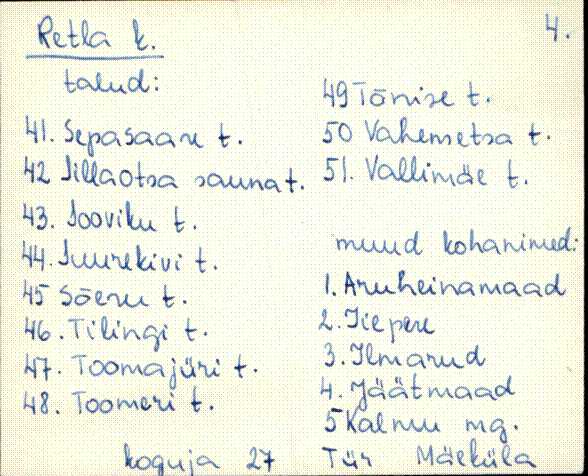 Retla k.
4.
talud:
41. Sepasaare t.
42 Sillaotsa sauna t.
43. Sooviku t.
44. Suurekivi t.
45 Sõeru t.
46. Tilingi t.
47. Toomajüri t.
48. Toomeri t.
49 Tõnise t.
50 Vahemetsa t.
51. Vallimäe t.
muud kohanimed:
1. Aruheinamaad
2. Iiepere
3. Ilmarud
4. Jäätmaad
5 Kalmu mg.
koguja 27 Tür Mäeküla